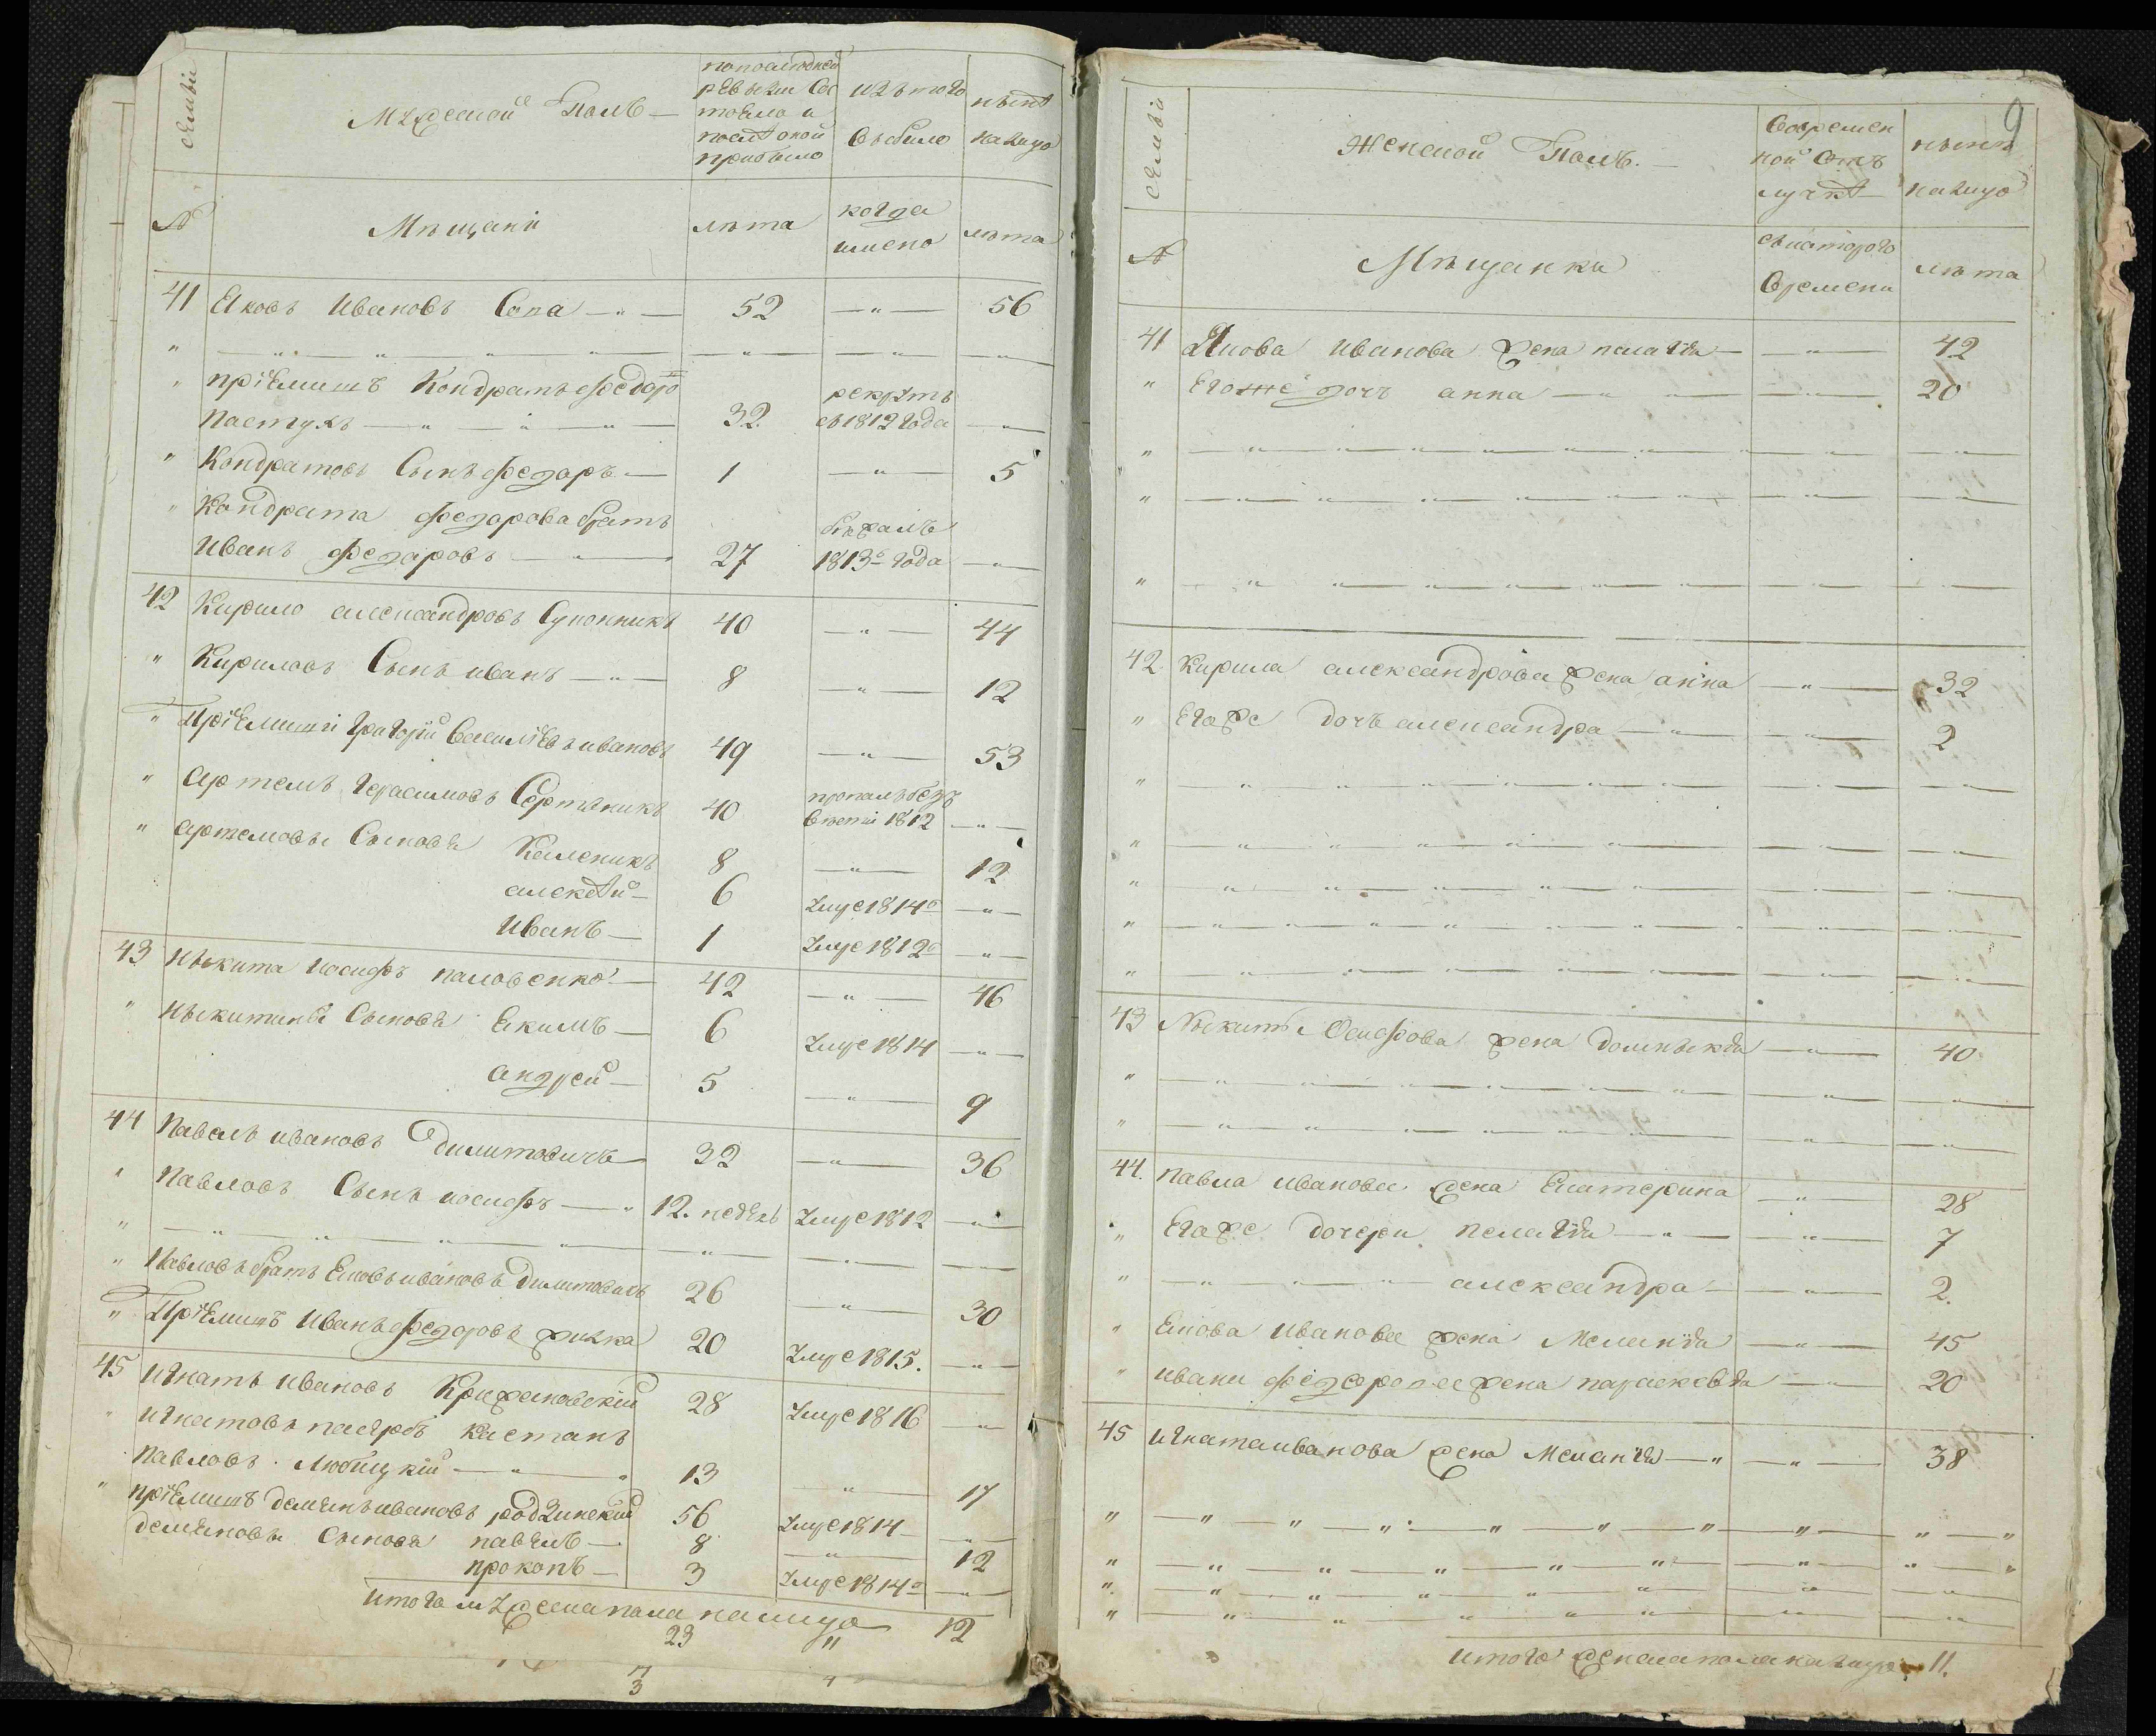 семьи
Мужеской Полъ
по последней
ревизии сос
тояло и
после оной
прибыло
изъ того
выбыло
ныне
на лицо
№
Мещани
лета
когда
имено
лета
41 Яковъ Ивановъ Сопа — 52 — 56
" пріемишъ Кондратъ Федоро
Пастухъ — 32. рекрутъ съ 1812 года —
" Кондратовъ Сынъ Федоръ — 1 — 5
" Кондрата Федорова братъ
Иванъ Федоровъ — 27 бежалъ 1813го года —
42 Кирило александровъ 40 — 44
" Кириловъ Сынъ иванъ — 8 — 12
" Пріемиши Григорій Василіевъ ивановъ 49 — 53
" артемъ Герасимовъ 40 пропалъ безъ вести 1812 —
" артемовы Сыновя Каленикъ 8 — 12
алексей — 6 умре 1814го —
Иванъ — 1 умре 1812го —
43 Ныкита иосифъ паловенко — 42 — 46
" Ныкитины Сыновя Екимъ — 6 умре 1814 —
андрей — 5 — 9
44 Павелъ ивановъ Дилитовичъ 32 — 36
" Павловъ Сынъ иосифъ — 12. недель умре 1812 —
" Павловъ братъ Яковъ ивановъ Дилитовичъ 26 — 30
" Пріемишъ Иванъ Федоровъ 20 умре 1815. —
45 Игнатъ ивановъ Крижановскій 28 умре 1816 —
" игнатовъ
Павловъ Любицкій — 13 — 17
" пріемишъ демянъ ивановъ 56 умре 1814 —
демяновы Сыновя павелъ — 8 — 12
прокопъ — 3 умре 1814го —
итого мужеска пола налицо 12
23 11
9
семьи
Женской Полъ.
Во времен
ной отъ
лучке
ныне
на лицо
№
Мещанки
съ которого
времени
лета
41 Якова иванова жена пелагія — 42
" Егоже дочъ анна — 20
42. Кирила александрова жена анна — 32
" Егоже дочъ александра — 2
43 Ныкиты Осифова жена — 40
44. Павла иванова жена Екатерина — 28
" Егоже дочери пелагія — 7
" — александра — 2.
" Якова иванова жена Меланія — 45
" ивана федорова жена параскевія — 20
45 игната иванова жена Меланія — 38
итого женска пола на лицо 11.